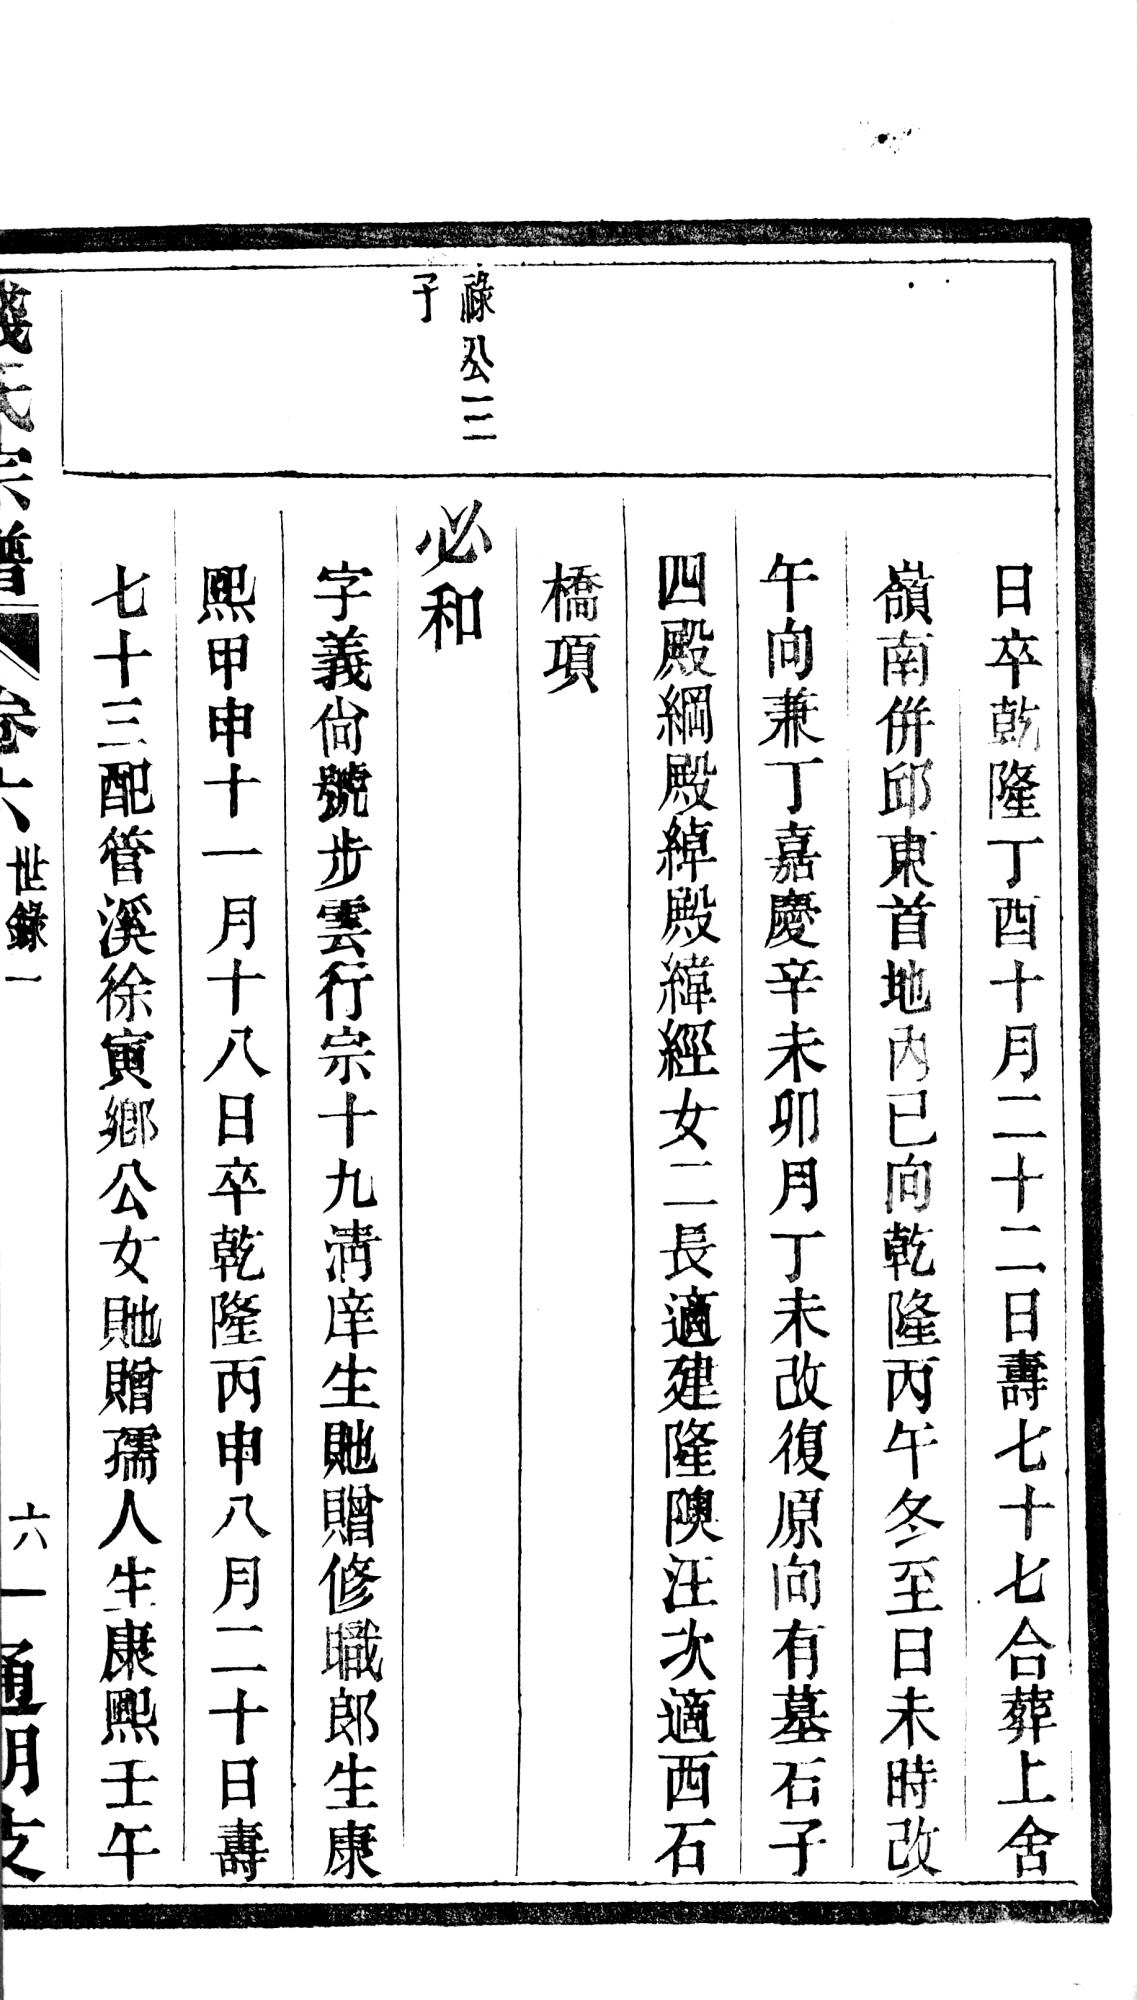 日卒乾隆丁酉十月二十二日壽七十七合葬上舍
嶺南併邱東首地內巳向乾隆丙午冬至日未時改
午向兼丁嘉慶辛未卯月丁未改復原向有墓石子
四殿綱殿綽殿緯經女二長適建隆隩汪次適西石
橋項
祿公三
子
必和
字義尙號步雲行宗十九淸庠生貤贈修職郎生康
熙甲申十一月十八日卒乾隆丙申八月二十日壽
七十三配管溪徐寅鄉公女貤贈孺人生康熙壬午
錢氏宗譜
卷六
世錄一
六一
通明支